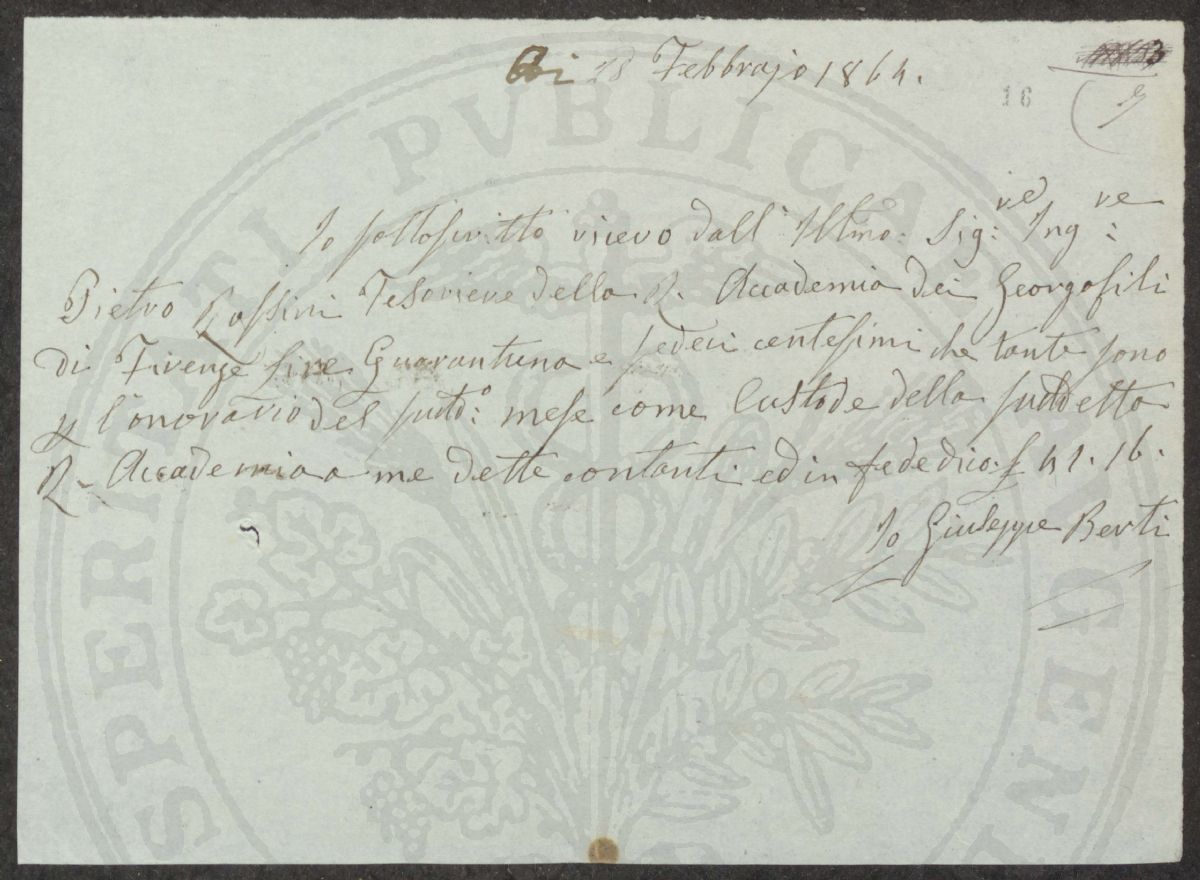 Adi 28 Febbrajo 1864.
16
3
Io sottoscritto ricevo dall' Illmo: Sig:re Ing:re
Pietro Passini Tesoriere della R. Accademia dei Georgofili
di Firenze Lire Quarantuna e sedeci centesimi che tante sono
p l'onorario del sudd:o mese come Custode della suddetta
R. Accademia a me dette contanti ed in fede dico £ 41. 16.
Io Giuseppe Berti
SPERITATI PVBLICAE AVGEN